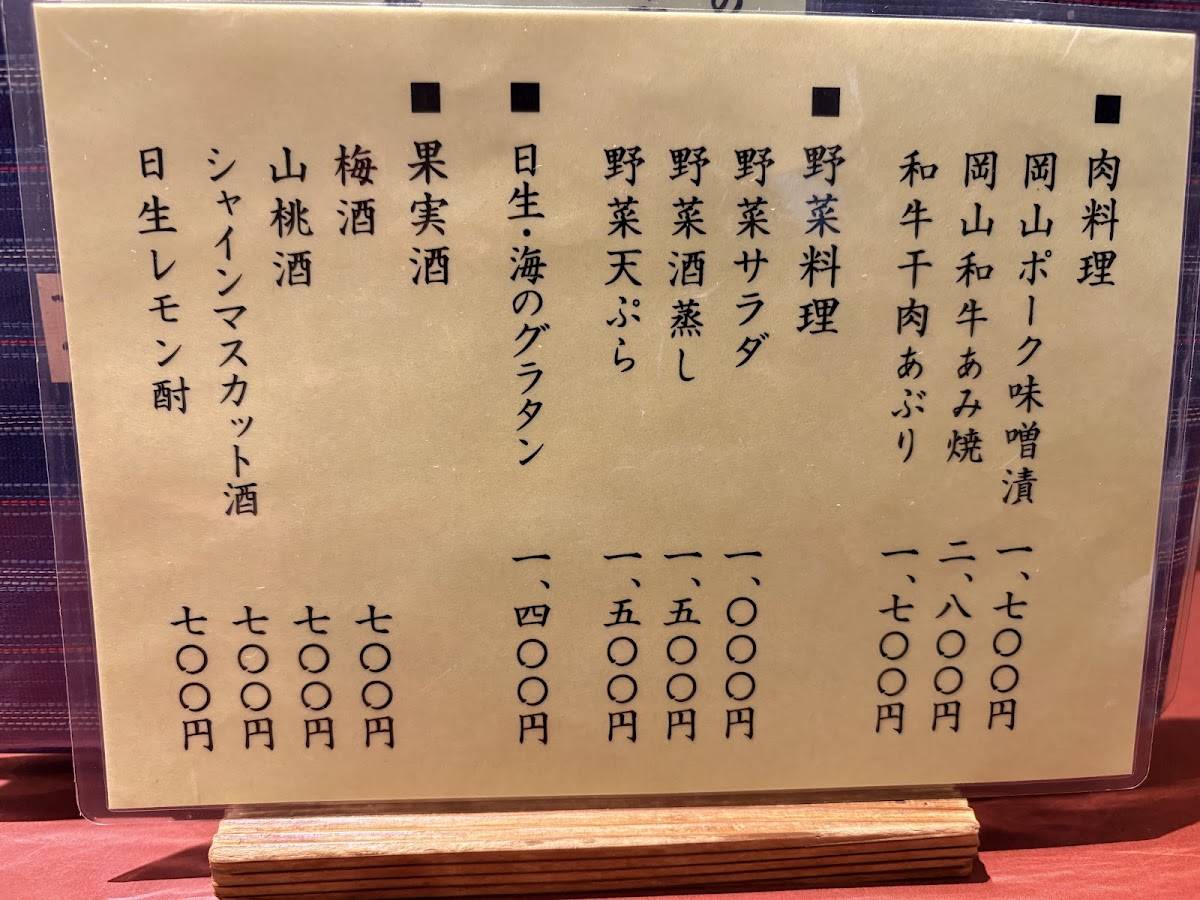 ■肉料理
岡山ポーク味噌漬 一、七〇〇円
岡山和牛あみ焼 二、八〇〇円
和牛干肉あぶり 一、七〇〇円
■野菜料理
野菜サラダ 一、〇〇〇円
野菜酒蒸し 一、五〇〇円
野菜天ぷら 一、五〇〇円
■日生・海のグラタン 一、四〇〇円
■果実酒
梅酒 七〇〇円
山桃酒 七〇〇円
シャインマスカット酒 七〇〇円
日生レモン酎 七〇〇円
の